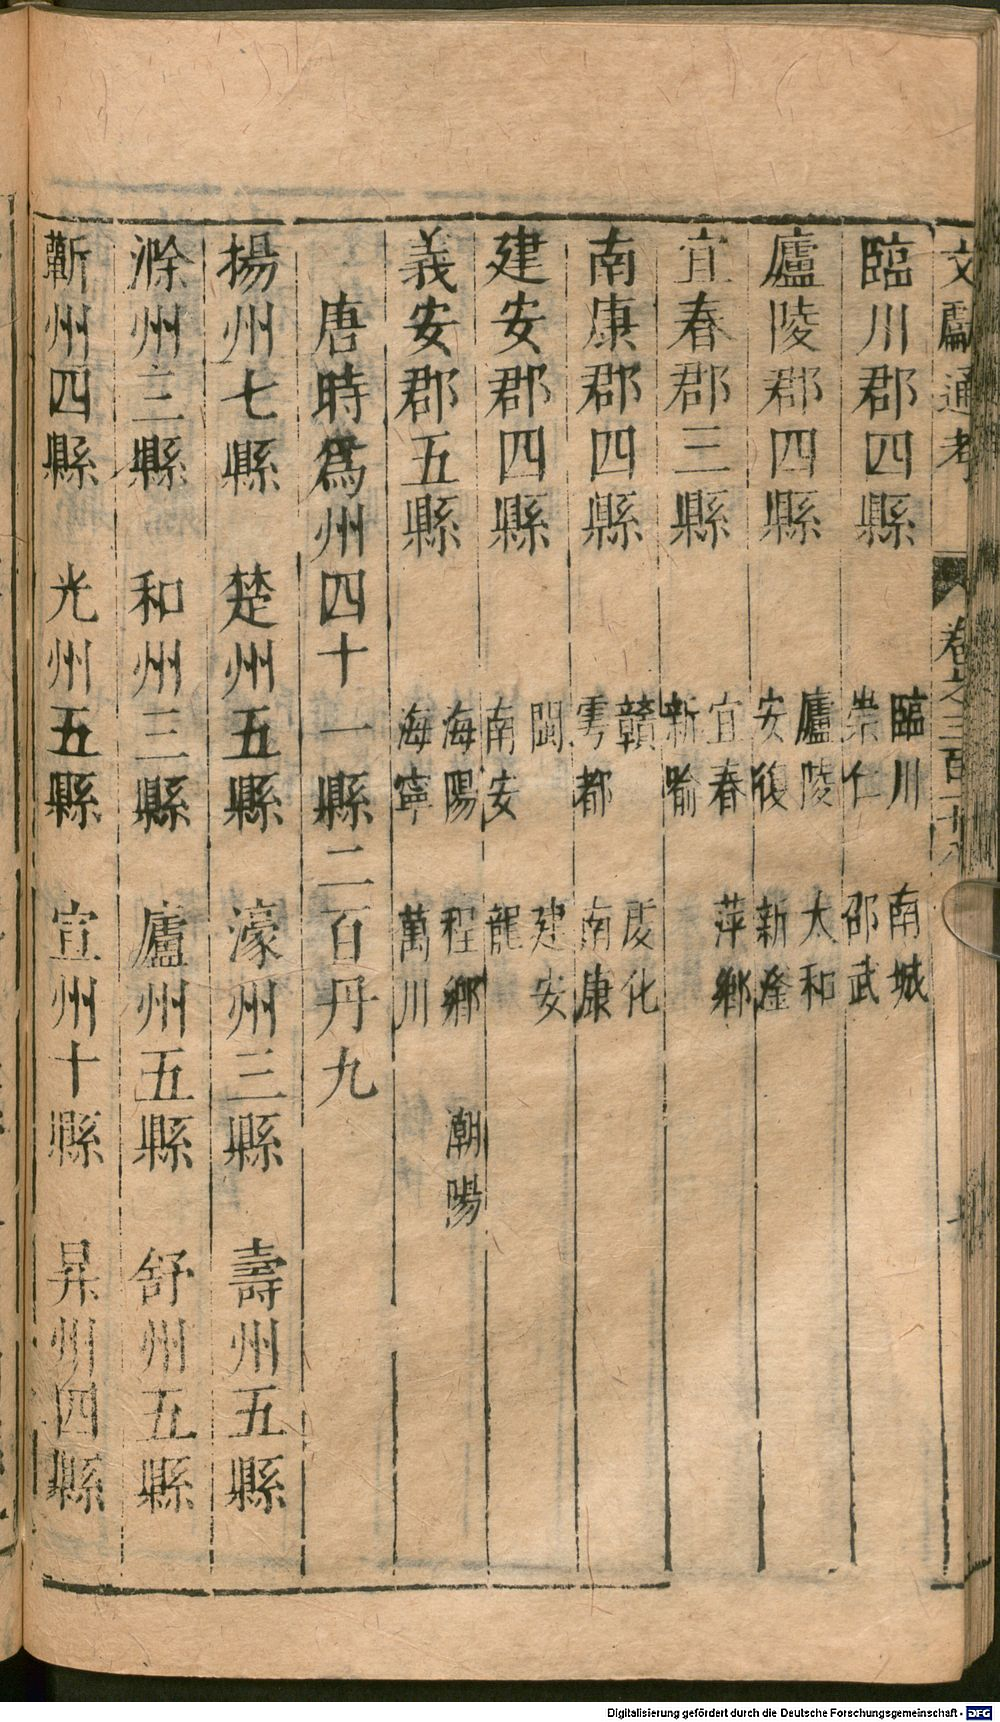 文獻通考 卷之三百十八
臨川郡四縣 臨川 南城
崇仁 邵武
廬陵郡四縣 廬陵 太和
安復 新淦
宜春郡三縣 宜春 萍鄉
新喻
南康郡四縣 贛 虔化
雩都 南康
建安郡四縣 閩 建安
南安 龍
義安郡五縣 海陽 程鄉 潮陽
海寧 萬川
唐時爲州四十一縣二百丹九
揚州七縣 楚州五縣 濠州三縣 壽州五縣
滁州三縣 和州三縣 廬州五縣 舒州五縣
蘄州四縣 光州五縣 宣州十縣 昇州四縣
Digitalisierung gefördert durch die Deutsche Forschungsgemeinschaft - DFG